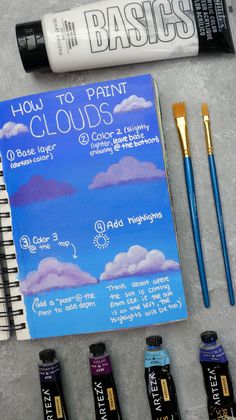 BASICS
HOW TO PAINT
CLOUDS
① Base layer
(darkest color)
② Color 2 (slightly
lighter, leave base
showing @ the bottom)
③ Color 3
@ the top
④ Add highlights
(add a "poof" @ the
front to add depth)
Think about where
the sun is coming
from (ex. if the sun
is on the left, the
highlights will be too)
ARTEZA
ARTEZA
ARTEZA
ARTEZA